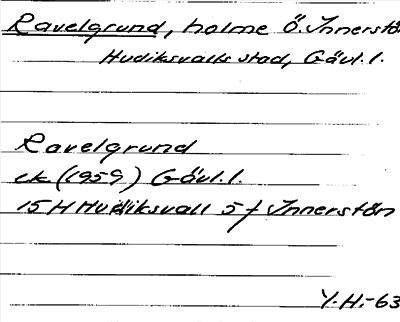 Ravelgrund, holme Ö. Innerstön
Hudiksvalls stad, Gävl. l.
Ravelgrund
ek (1959) Gävl. l.
15 H Hudiksvall 5 f Innerstön
Y. H. -63